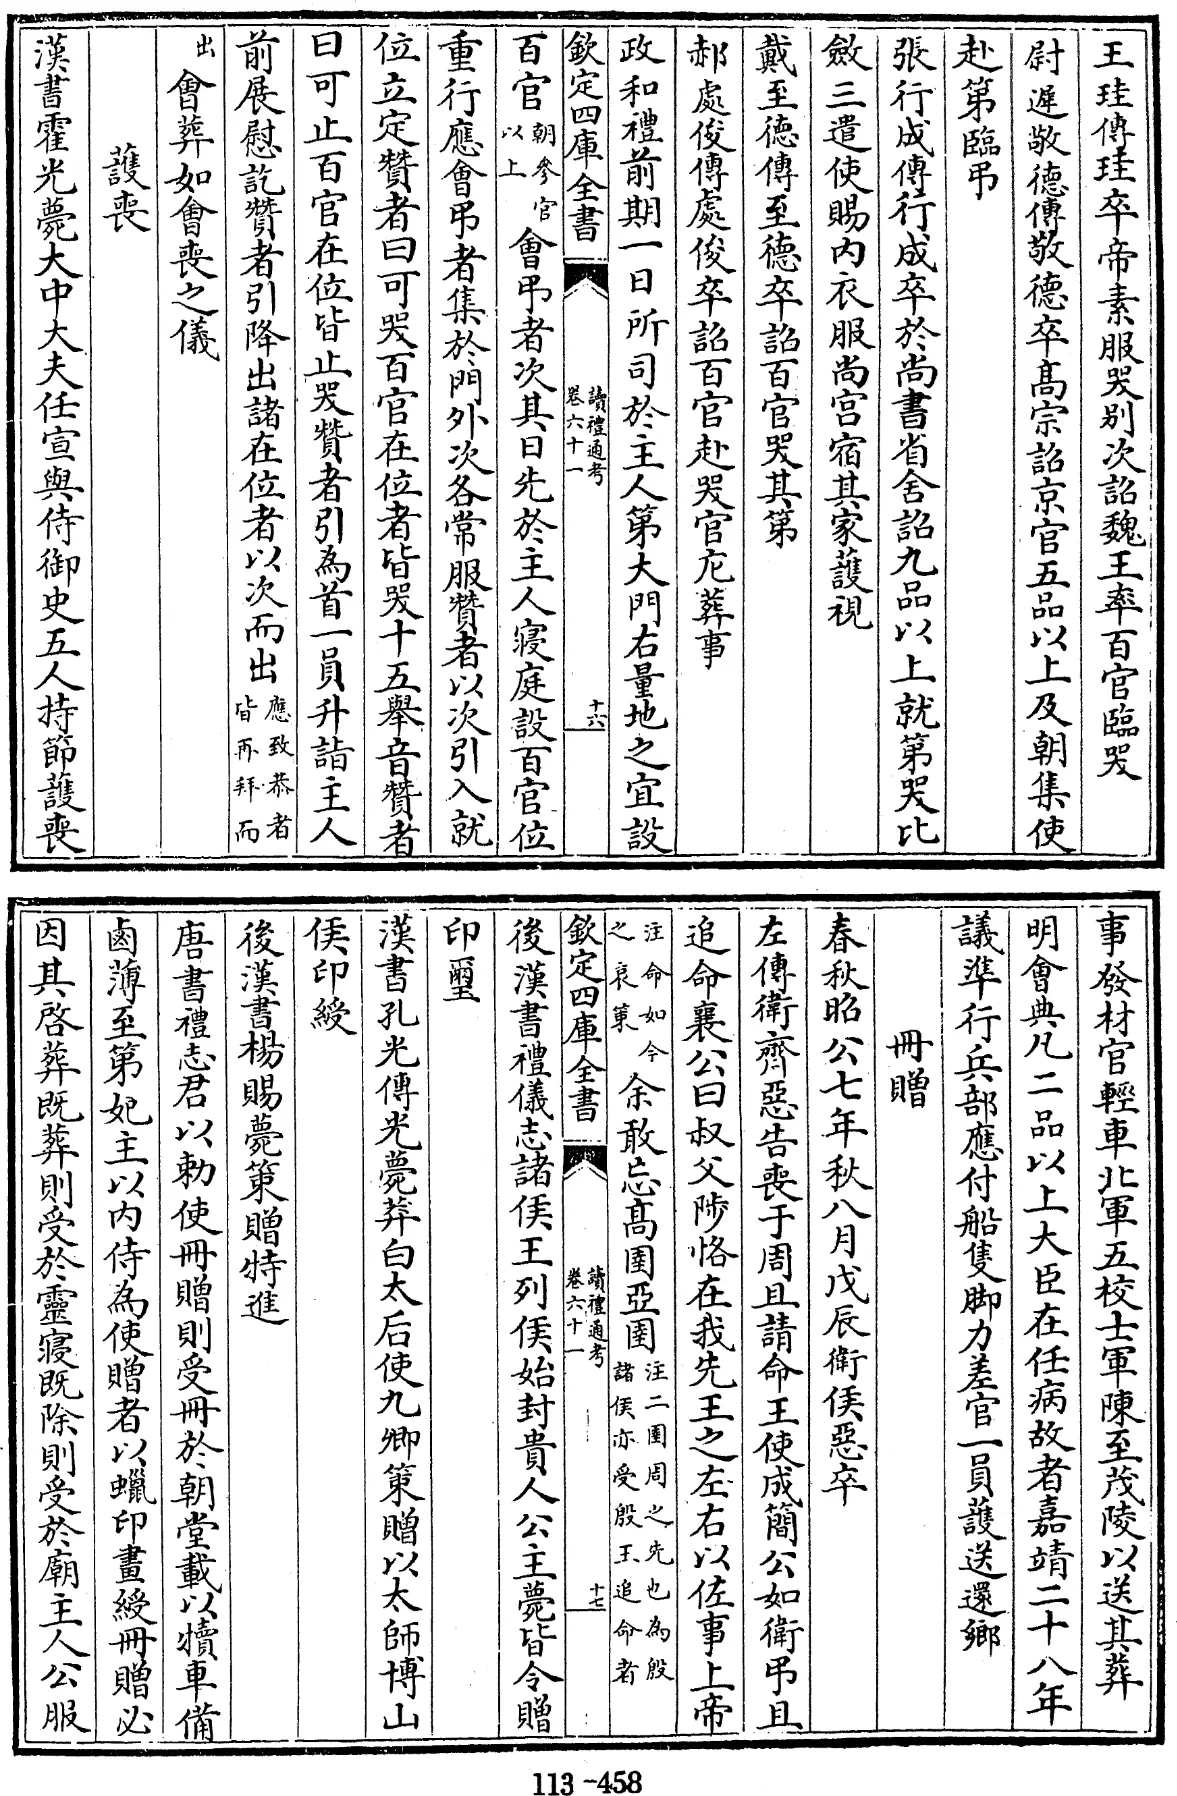 王珪傳珪卒帝素服哭别次詔魏王率百官臨哭
尉遲敬德傳敬德卒高宗詔京官五品以上及朝集使
赴第臨弔
張行成傳行成卒於尚書省舍詔九品以上就第哭比
斂三遣使賜内衣服尚宫宿其家護視
戴至德傳至德卒詔百官哭其第
郝處俊傳處俊卒詔百官赴哭官庀葬事
政和禮前期一日所司於主人第大門右量地之宜設
欽定四庫全書
讀禮通考
卷六十一
十六
百官朝參官以上會弔者次其日先於主人寢庭設百官位
重行應會弔者集於門外次各常服贊者以次引入就
位立定贊者曰可哭百官在位者皆哭十五舉音贊者
曰可止百官在位皆止哭贊者引為首一員升詣主人
前展慰訖贊者引降出諸在位者以次而出應致恭者皆再拜而
出會葬如會喪之儀
護喪
漢書霍光薨大中大夫任宣與侍御史五人持節護喪
事發材官輕車北軍五校士軍陳至茂陵以送其葬
明會典凡二品以上大臣在任病故者嘉靖二十八年
議準行兵部應付船隻脚力差官一員護送還鄉
冊贈
春秋昭公七年秋八月戊辰衛侯惡卒
左傳衛齊惡告喪于周且請命王使成簡公如衛弔且
追命襄公曰叔父陟恪在我先王之左右以佐事上帝
注命如今之哀策余敢忘高圉亞圉注二圉周之先也為殷諸侯亦受殷王追命者
欽定四庫全書
讀禮通考
卷六十一
十七
後漢書禮儀志諸侯王列侯始封貴人公主薨皆令贈
印璽
漢書孔光傳光薨莽白太后使九卿策贈以太師博山
侯印綬
後漢書楊賜薨策贈特進
唐書禮志君以勅使冊贈則受冊於朝堂載以犢車備
鹵薄至第妃主以内侍為使贈者以蠟印畫綬冊贈必
因其啓葬既葬則受於靈寢既除則受於廟主人公服
113-458